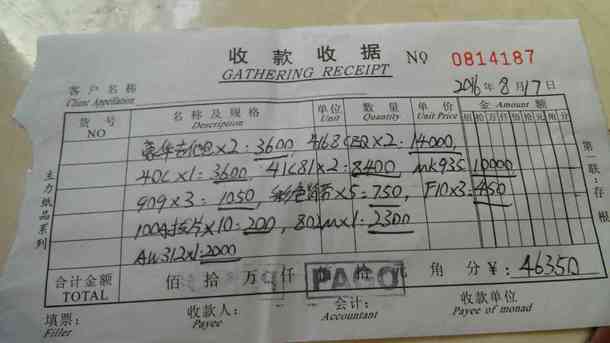 收款收据 NO 0814187
GATHERING RECEIPT
2016年8月17日
客户名称
Client Appellation
货号 名称及规格 单位 数量 单价 金 Amount 额
NO Description Unit Quantity Unit Price 佰拾万仟佰拾元角分
×2:3600 4168 ×2:14000,
40C×1:3600 41C81×2:8400 MK935 10000
909×3:1050, 彩色 ×5:750, F10×3:450
100A 片×10:200, 802M×1:2300
AW312×1:2000
合计金额 佰 拾 万 仟 拾 元 角 分 ¥:46350
TOTAL PAGO
填票: 收款人: 会计: 收款单位
Filler Payee Accountant Payee of monad
主力纸品系列
第一联:存根